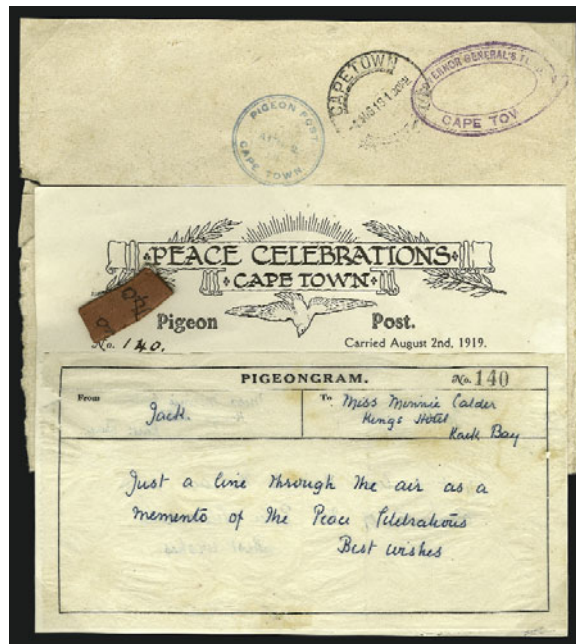 CAPETOWN
GOVERNOR GENERAL'S
CAPE TOW
PIGEON POST
CAPE TOWN
PEACE CELEBRATIONS
CAPE TOWN
Pigeon Post.
No. 140.
Carried August 2nd, 1919.
PIGEONGRAM. No. 140
From To Miss Minnie Calder
Jack. Kings Hotel
Kack Bay
Just a line through the air as a
memento of the Peace Celebrations
Best wishes